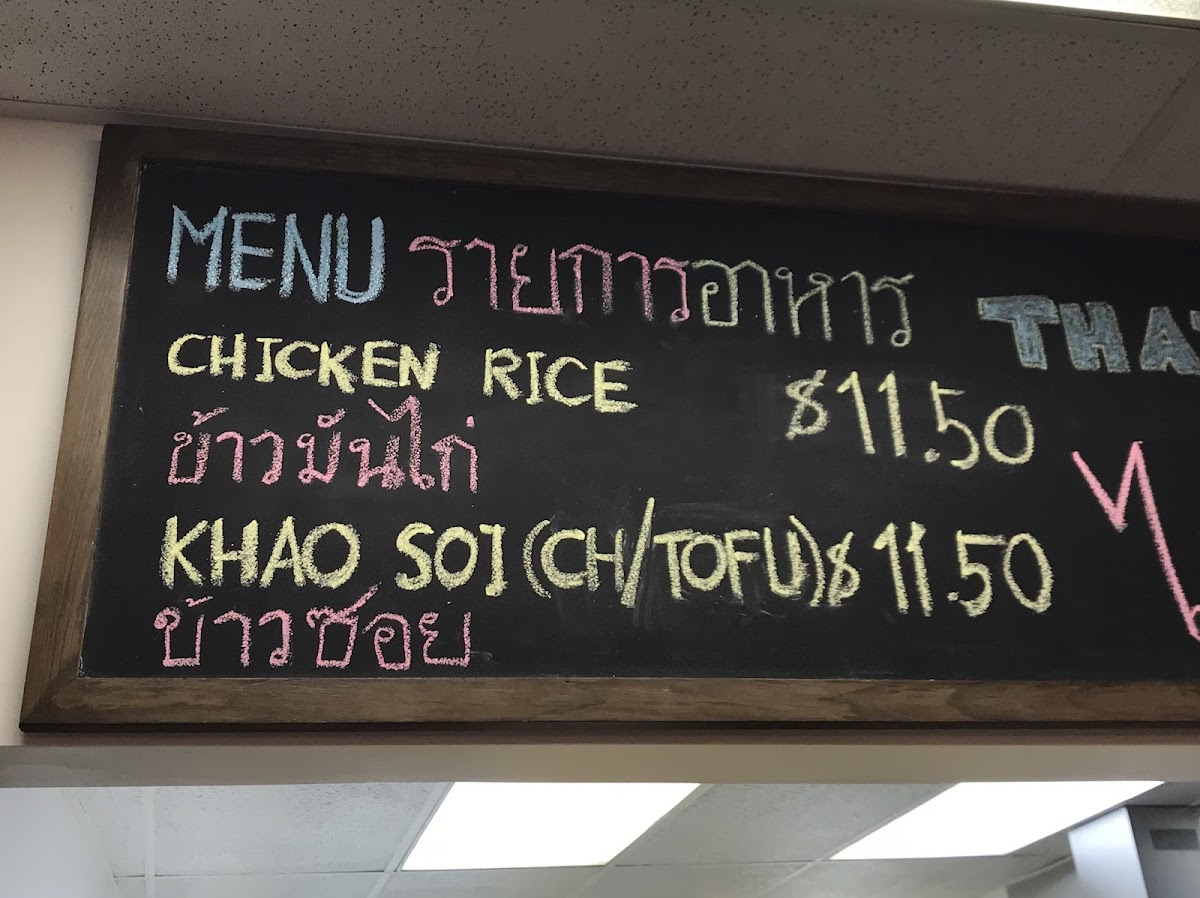 MENU รายการอาหาร
CHICKEN RICE $11.50
ข้าวมันไก่
KHAO SOI (CH/TOFU) $11.50
ข้าวซอย